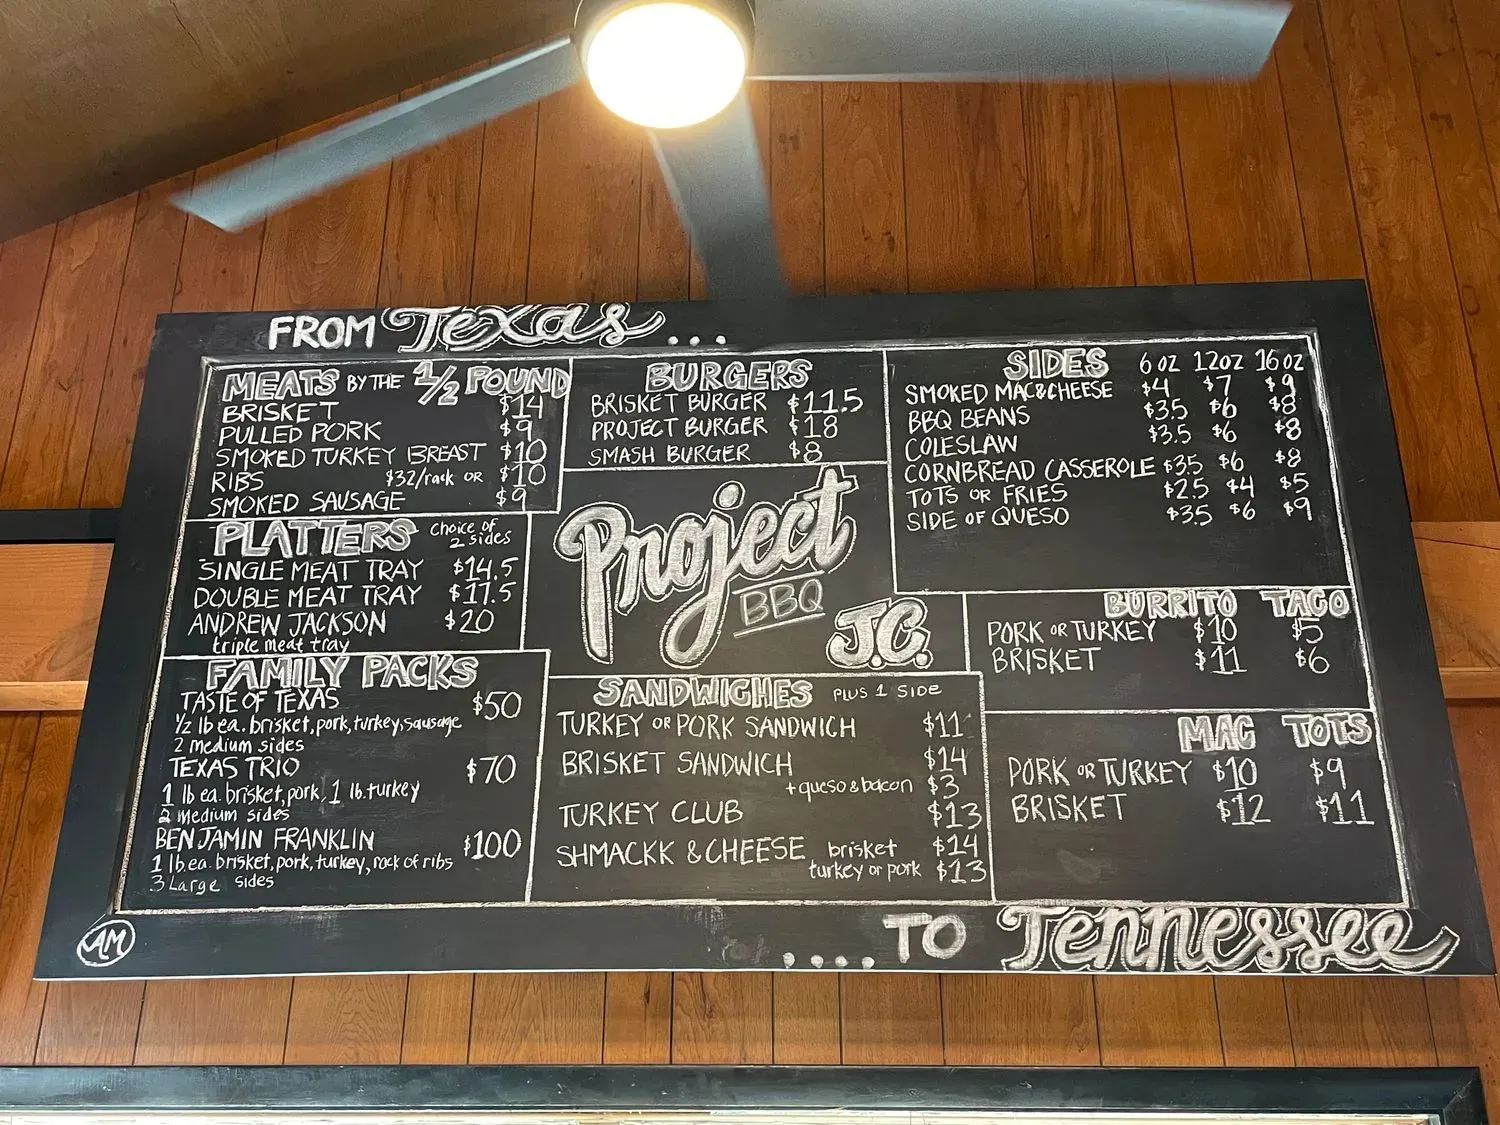 FROM Texas...
MEATS BY THE 1/2 POUND
BRISKET $14
PULLED PORK $9
SMOKED TURKEY BREAST $10
RIBS $32/rack OR $10
SMOKED SAUSAGE $9
PLATTERS choice of 2 sides
SINGLE MEAT TRAY $14.5
DOUBLE MEAT TRAY $17.5
ANDREW JACKSON $20
triple meat tray
FAMILY PACKS
TASTE OF TEXAS $50
1/2 lb ea. brisket, pork, turkey, sausage
2 medium sides
TEXAS TRIO $70
1 lb ea. brisket, pork, 1 lb. turkey
2 medium sides
BENJAMIN FRANKLIN $100
1 lb. ea. brisket, pork, turkey, rack of ribs
3 Large sides
BURGERS
BRISKET BURGER $11.5
PROJECT BURGER $18
SMASH BURGER $8
Project
BBQ
J.C.
SANDWICHES PLUS 1 SIDE
TURKEY OR PORK SANDWICH $11
BRISKET SANDWICH $14
+queso & bacon $3
TURKEY CLUB $13
SHMACKK & CHEESE brisket $14
turkey or pork $13
SIDES 6 oz 12 oz 16 oz
SMOKED MAC&CHEESE $4 $7 $9
BBQ BEANS $3.5 $6 $8
COLESLAW $3.5 $6 $8
CORNBREAD CASSEROLE $3.5 $6 $8
TOTS OR FRIES $2.5 $4 $5
SIDE OF QUESO $3.5 $6 $9
BURRITO TACO
PORK OR TURKEY $10 $5
BRISKET $11 $6
MAC TOTS
PORK OR TURKEY $10 $9
BRISKET $12 $11
AM
....TO Tennessee